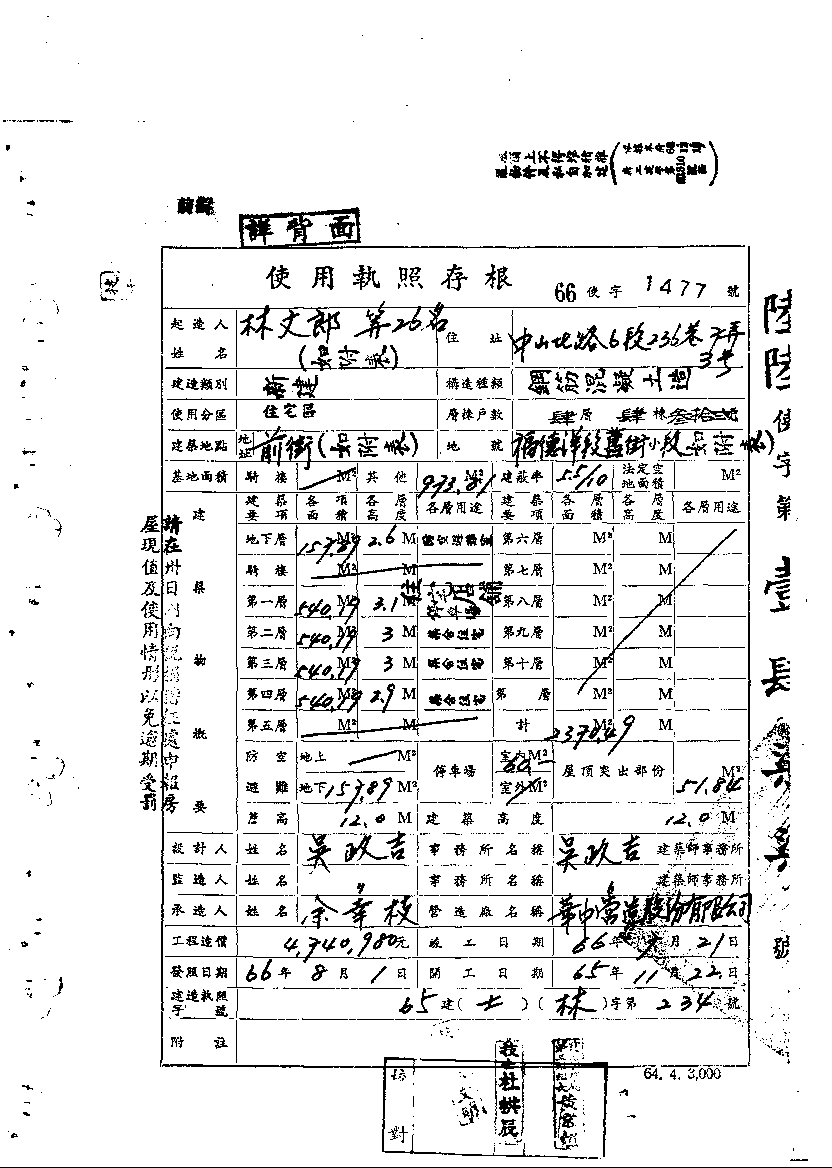 詳背面
使用執照存根
66 使字 1477 號
起造人姓名 林文郎 等26名 (如附表)
住址 中山北路6段236巷 弄 3号
建造類別 新建 構造種類 鋼筋混凝土造
使用分區 住宅區 層棟戶數 肆層 肆棟
建築地點 地址 前街(如附表) 地號 福德洋段舊街小段 如附表)
基地面積 騎樓 M² 其他 973.81 M² 建蔽率 5.5/10 法定空地面積 M²
建築要項 各項面積 各層高度 各層用途 建築要項 各層面積 各層高度 各層用途
地下層 157.89 M² 2.6 M 第六層 M² M
騎樓 M² M 第七層 M² M
第一層 540.79 M² 3.1 M 住宅店舖 第八層 M² M
第二層 540.79 M² 3 M 集合住宅 第九層 M² M
第三層 540.79 M² 3 M 集合住宅 第十層 M² M
第四層 540.79 M² 2.9 M 集合住宅 第 層 M² M
第五層 M² M 計 2370.49 M² M
建築物概要
防空避難 地上 M² 停車場 室內 M² 屋頂突出部份 51.84 M²
地下 157.89 室外 M²
簷高 12.0 M 建築高度 12.0 M
設計人 姓名 吳政吉 事務所名稱 吳政吉 建築師事務所
監造人 姓名 〃 事務所名稱 〃 建築師事務所
承造人 姓名 余幸枝 營造廠名稱 華中營造股份有限公司
工程造價 4,740,980元 竣工日期 66年 7月 21日
發照日期 66年 8月 1日 開工日期 65年 11月 22日
建造執照字號 65建(士)(林)字第 234 號
附註
64. 4. 3,000
校對
請在卅日內向稅捐稽征處申報房
屋現值及使用情形以免逾期受罰
陸陸使字第壹 號